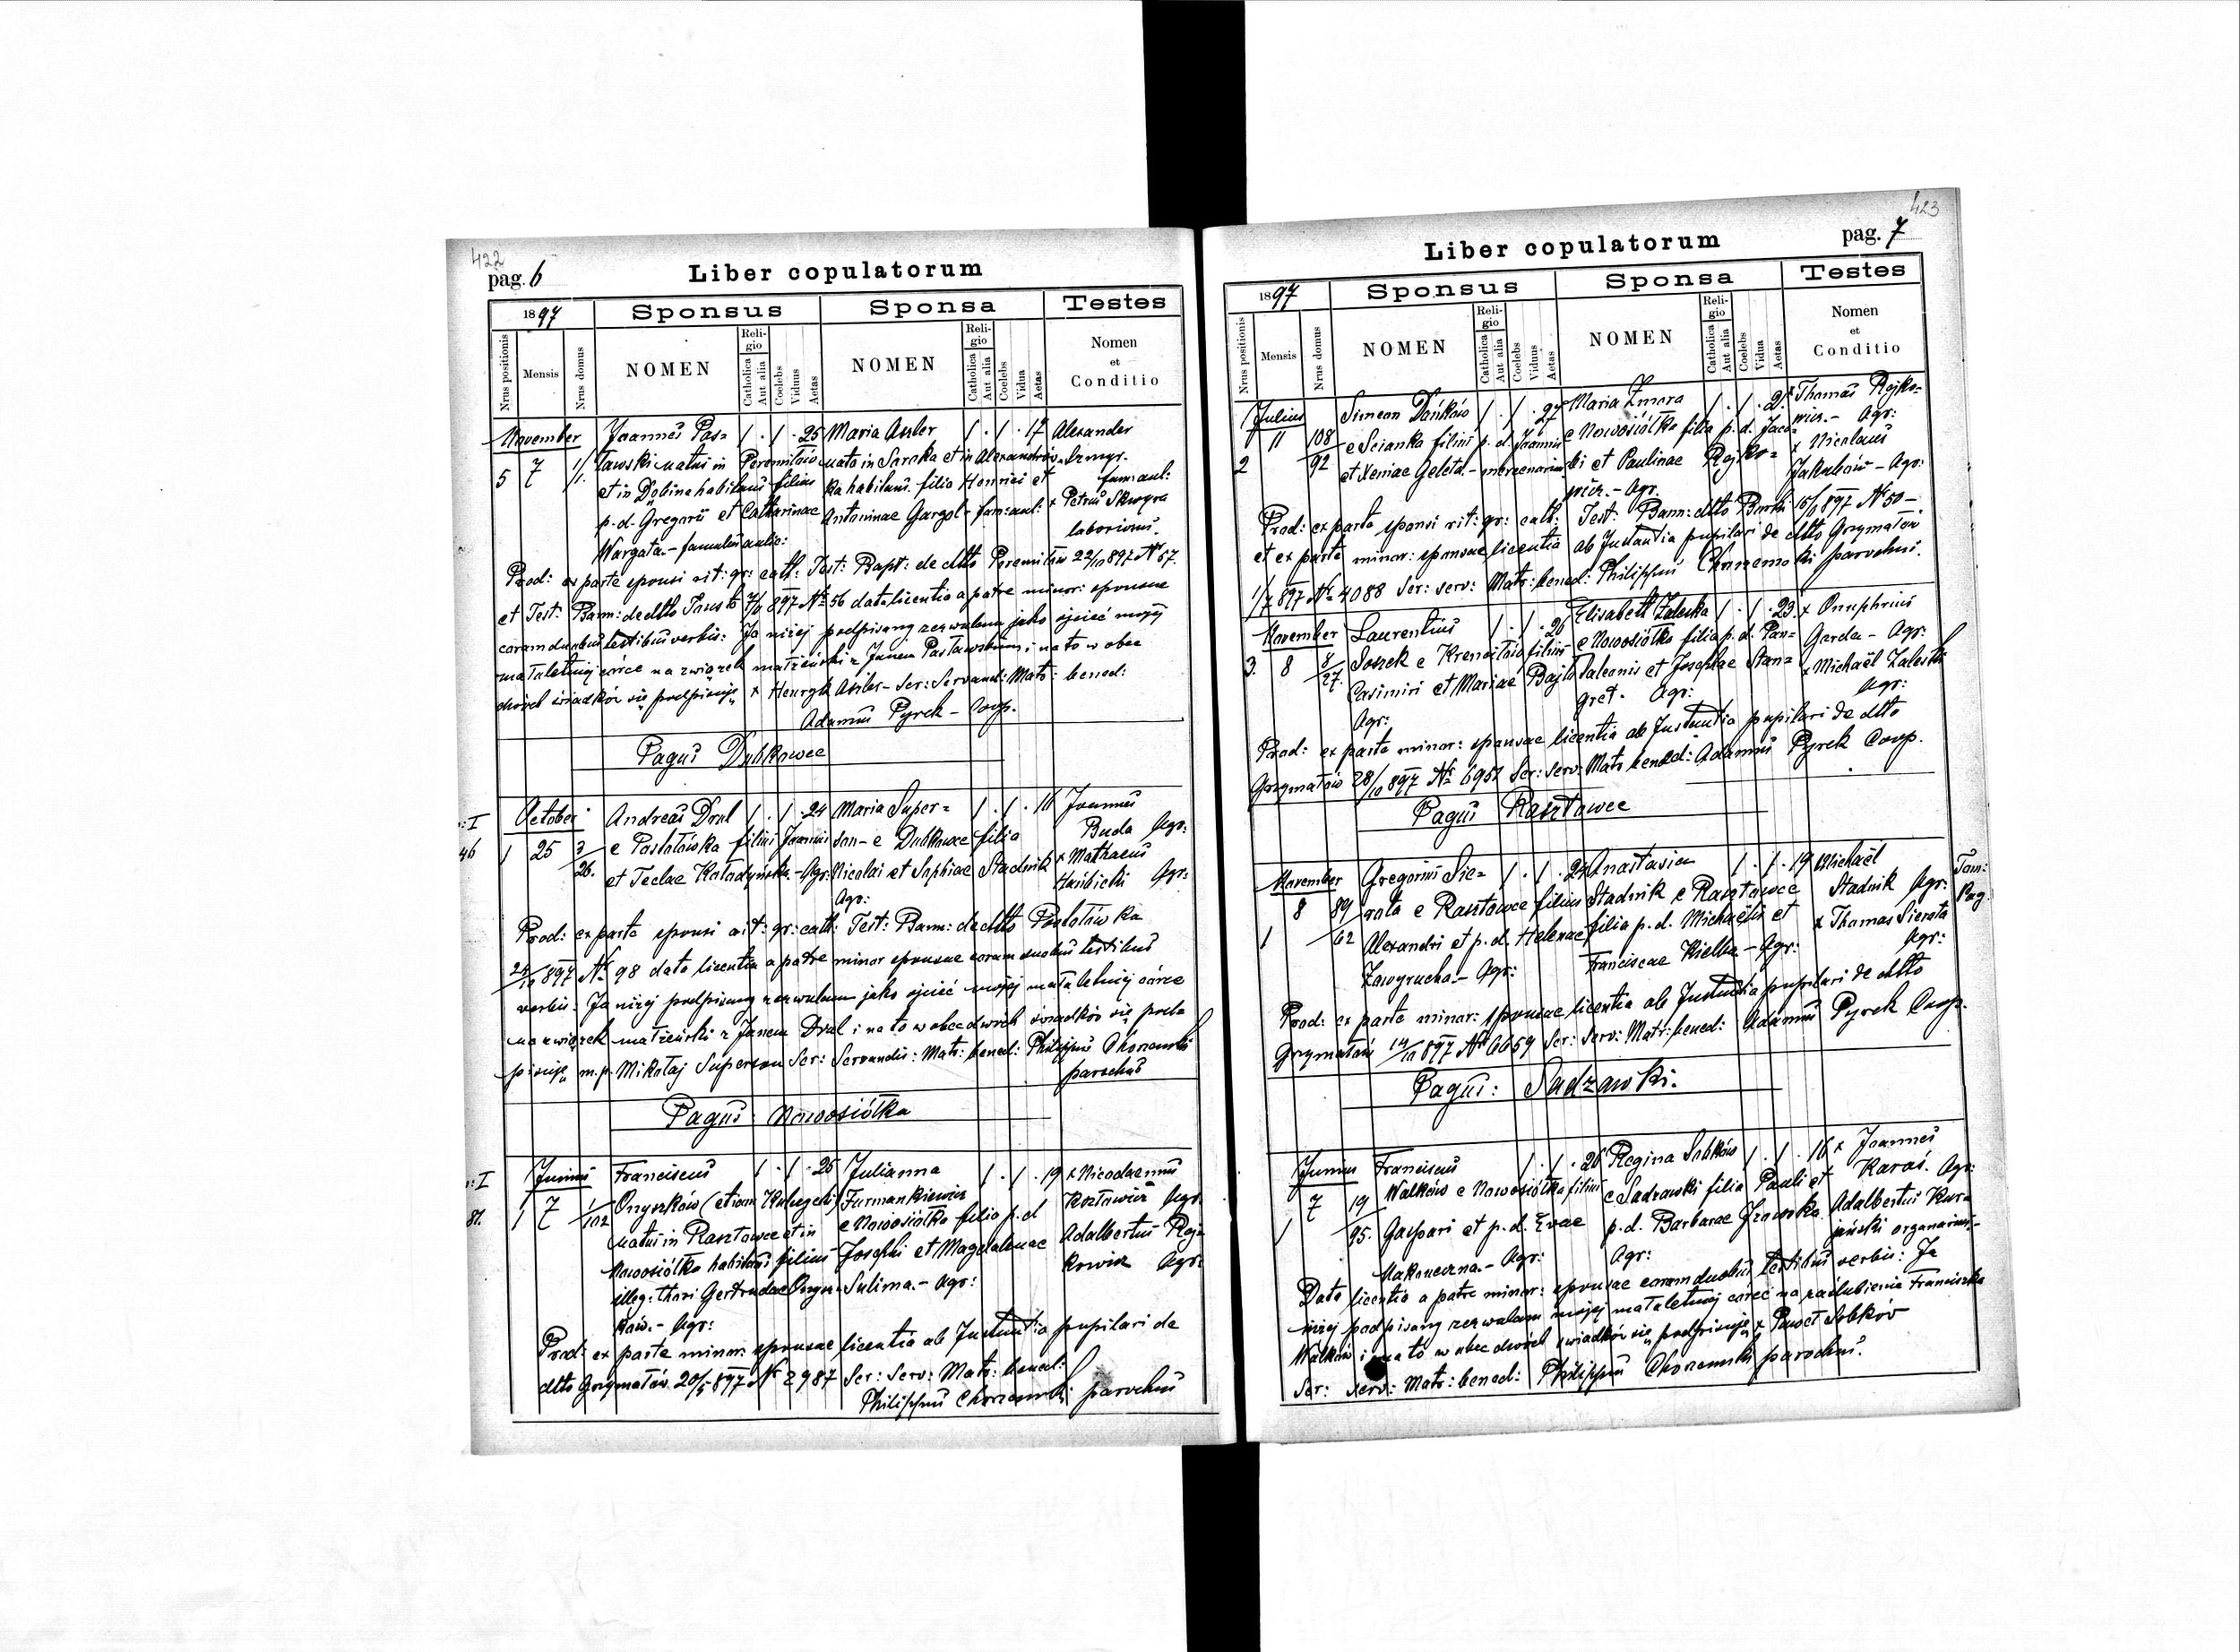 422
pag. 6
Liber copulatorum
1897 Sponsus Sponsa Testes
Nrus positionis Mensis Nrus domus NOMEN Religio Catholica Aut alia Coelebs Viduus Aetas NOMEN Religio Catholica Aut alia Coelebs Vidua Aetas Nomen et Conditio
November Joannes Pas= 1 . 1 . 25 Maria 1 . 1 . 17 Alexander
5 7 1/1. tawski natus in Peremiłów nata in et in Alexandrów=
et in habitans filius ka habitans filia Henrici et famaul:
p. d. Gregorii et Catharinae Antoninae Gargol - fam: aul: x Petrus Skwyra
Wargata - famulus aulic: laboriosus.
Prod: ex parte sponsi rit: gr: cath: Test: Bapt: de dtto Peremiłów 22/10 897 No 57.
et Test: Bann: de dtto 897 No 56 data licentia a patre minor: sponsae
coram duobus testibus verbis: Ja niżej podpisany zezwalam jako ojciec mojej
małaletniej córce na związek małżeński z Janem Pastawskim i na to w obec
dwóch świadków się podpisuję x Henryk - Ser: Servand: Matr: bened:
Adamus Pyrek - Coop.
Pagus Dubkowce
October Andreas Dral 1 . 1 . 24 Maria Super= 1 . 1 . 16 Joannes
: I
46 1 25 3/26. e Postołówka filius Joannis son - e Dubkowce filia Buda Agr:
et Teclae - Agr: Nicolai et Sophiae Stadnik x Mathaeus
Agr: Agr:
Prod: ex parte sponsi rit: gr: cath: Test: Bann: de dtto Postołówka
24/10 897 No 98 data licentia a patre minor sponsae coram duobus testibus
verbis: Ja niżej podpisany zezwalam jako ojciec mojej małaletniej córce
na związek małżeński z Janem Dral i na to w obec dwóch świadków się pod=
pisuję m. p. Mikołaj Superson Ser: Servandis: Matr: bened: Philippus Chorzemski
parochus
Pagus: Nowosiółka
: I Junius Franciscus 1 . 1 . 25 Julianna 1 . 1 . 19 x Nicodaemus
81. 1 7 1/102 Onyszków (etiam ) Furmankiewicz Kozłowicz Agr
natus in Rasztowce et in e Nowosiółka filia p. d Adalbertus Roj=
Nowosiółka habitans filius Josephi et Magdalenae kowicz Agr:
illeg: thori Gertrudae Onysz= Sulima. - Agr:
ków. - Agr:
Prod: ex parte minor: sponsae licentia ab Instantia pupilari de
dtto Grzymałów 20/5 897 No 2987 Ser: Serv: Matr: bened:
Philippus Chorzemski parochus
423
pag. 7
Liber copulatorum
1897 Sponsus Sponsa Testes
Nrus positionis Mensis Nrus domus NOMEN Religio Catholica Aut alia Coelebs Viduus Aetas NOMEN Religio Catholica Aut alia Coelebs Vidua Aetas Nomen et Conditio
Julius Simeon Dańków 1 . 1 . 27 Maria Zmora 1 . 1 . 21 x Thomas Rojko=
11 108 e Scianka filius p. d. Joannis e Nowosiółka filia p. d. Jaco= wicz. - Agr:
2 /92 et Xeniae Geleta. - mercenarius bi et Paulinae Rojko= x Nicolaus
wicz. - Agr. Jakubów - Agr:
Prod: ex parte sponsi rit: gr: cath: Test: Bann: dtto 897 No 50 -
et ex parte minor: sponsae licentia ab Instantia pupilari de dtto Grzymałów
1/7 897 No 4088 Ser: serv: Matr: bened: Philippus Chorzemski parochus.
November Laurentius 1 . 1 . 26 Elisabeth Zaleska 1 . 1 . 23. x Onuphrius
3. 8 8/27. Soszek e Krencitów filius e Nowosiółka filia p. d. Pan= Garda - Agr:
Casimiri et Mariae Bajto taleonis et Josephae Stan= x Michaël Zaleski
Agr: gret - Agr: Agr:
Prod: ex parte minor: sponsae licentia ab Instantia pupilari de dtto
Grzymałów 28/10 897 No 6957 Ser: serv: Matr bened: Adamus Pyrek Coop.
Pagus Rasztowce
November Gregorius Sie= 1 . 1 . 24 Anastasia 1 . 1 . 19 Michaël
8 89 rota e Rasztowce filius Stadnik e Rasztowce Stadnik Agr: Tom:
1 /62 Alexandri et p. d. Helenae filia p. d. Michaëlis et x Thomas Sierota Pag.
Zawyrucha - Agr: Franciscae Kielba - Agr: Agr:
Prod: ex parte minor: sponsae licentia ab Instantia pupilari de dtto
Grzymałów 14/10 897 No 6659 Ser: Serv: Matr: bened: Adamus Pyrek Coop.
Pagus: Sadzawki.
Junius Franciscus 1 . 1 . 26 Regina Sobków 1 . 1 . 16 x Joannes
7 19 Walków e Nowosiółka filius e Sadzawki filia Pauli et Karaś. Agr:
1 /95. Gaspari et p. d. Evae p. d. Barbarae Adalbertus Kur=
Makoneczna. - Agr: Agr: organarius -
Data licentia a patre minor: sponsae coram duobus testibus verbis: Ja
niżej podpisany zezwalam mojej małaletniej córce na zaślubienie Franciszka
Walków i na to w obec dwóch świadków się podpisuję x Paweł Sobków
Ser: serv: Matr: bened: Philippus Chorzemski parochus.